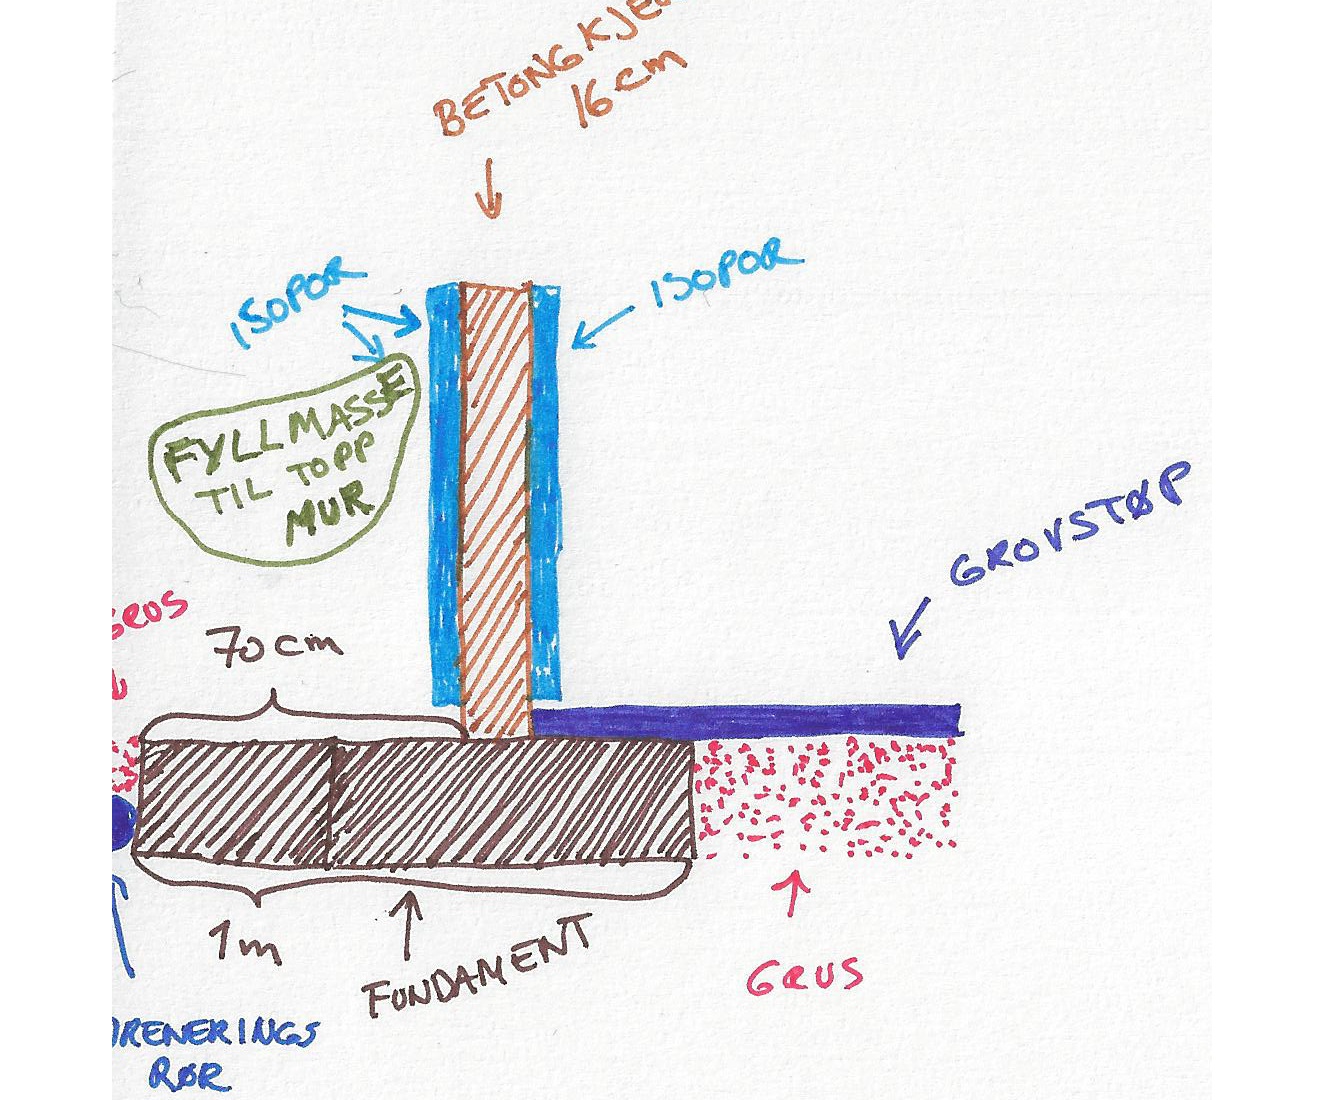 BETONG
16 cm
ISOPOR
ISOPOR
FYLLMASSE
TIL TOPP
MUR
GROVSTØP
GRUS
70 cm
1m
FUNDAMENT
GRUS
RØR